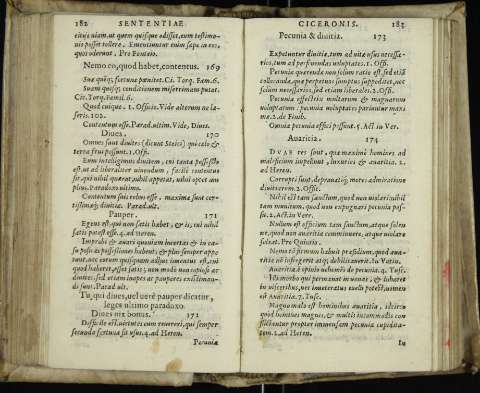 182 SENTENTIAE
cuius uiam, ut quem quisque odisset, eum testimo-
nio posset tollere. Ementiuntur enim sæpe in eos,
quos oderunt. Pro Fonteio.
Nemo eo, quod habet, contentus. 169
Suæ quẽq; fortunæ pœnitet. Ci. Torq. Fam. 6.
Suam quẽq; conditionem miserrimam putat.
Cic. Torq. Famil. 6.
Quod cuique. 1. Officis. Vide alterum ne læ-
seris. 102.
Contentum esse. Parad. ultim. Vide, Diues.
Diues. 170
Omnes sunt diuites (dicunt Stoici) qui cælo &
terra frui possunt. 2. Offi.
Eum intelligimus diuitem, cui tanta possessio
est, ut ad liberaliter uiuendum, facile contentus
sit, qui nihil quærat, nihil appetat, nihil optet am
plius. Paradoxo ultimo.
Contentum suis rebus esse, maximæ sunt cer-
tissimæq; diuitiæ. Parad. ult.
Pauper. 171
Egens est, qui non satis habet, & is, cui nihil
satis potest esse. 4. ad Heren.
Improbi & auari quoniam incertas & in ca-
su positas possessiones habent, & plus semper appe
tunt, nec eorum quisquam adhuc inuentus est, cui
quod haberet, esset satis: non modo non copiosi ac
diuites: sed etiam inopes ac pauperes existiman-
di sunt. Parad. ult.
Tu, qui diues, uel uerè pauper dicatur,
leges ultimo paradoxo.
Diues uix bonus. 172
Difficile est, uirtutes eum reuereri, qui semper
secunda fortuna sit usus. 4. ad Heren.
Pecunia
CICERONIS. 183
Pecunia & diuitiæ. 173
Expetuntur diuitiæ, tum ad uitæ usus necessa-
rios, tum ad perfruendas uoluptates. 1. Offi.
Pecuniæ quærendæ non solum ratio est, sed etiã
collocandæ, quæ perpetuos sumptus suppeditet, nec
solum necessarios, sed etiam liberales. 2. Offi.
Pecunia effectrix multarum & magnarum
uoluptatum: pecunia uoluptates pariuntur maxi
mæ. 2. de Finib.
Omnia pecunia effici possunt. 5. Act. in Ver.
Auaritia. 174
DVAE res sunt, quæ maximè homines ad
maleficium impellunt, luxuries & auaritia. 2.
ad Heren.
Corrupti sunt, deprauatiq; mores admiratione
diuitiarum. 2. Offic.
Nihil est tam sanctum, quod non uiolari: nihil
tam munitum, quod non expugnari pecunia pos-
sit. 2. Act. in Verr.
Nullum est officium tam sanctum, atque solen
ne, quod non auaritia comminuere, atque uiolare
soleat. Pro Quintio.
Nemo tã firmum habuit præsidium, quod aua-
ritia nõ infregerit atq; debilitauerit. In Vatin.
Auaritia ẽ opinio uehemẽs de pecunia. 4. Tusc.
Id morbi qui permanat in uenas, & inhæret
in uisceribus, nec inueteratus euelli potest, nomen
est Auaritia. 7. Tusc.
Magnum malum est hominibus auaritia, idcirco
quod homines magnis, & multis incommodis con
flictantur propter immensam pecuniæ cupidita-
tem. 2. ad Heren.
In